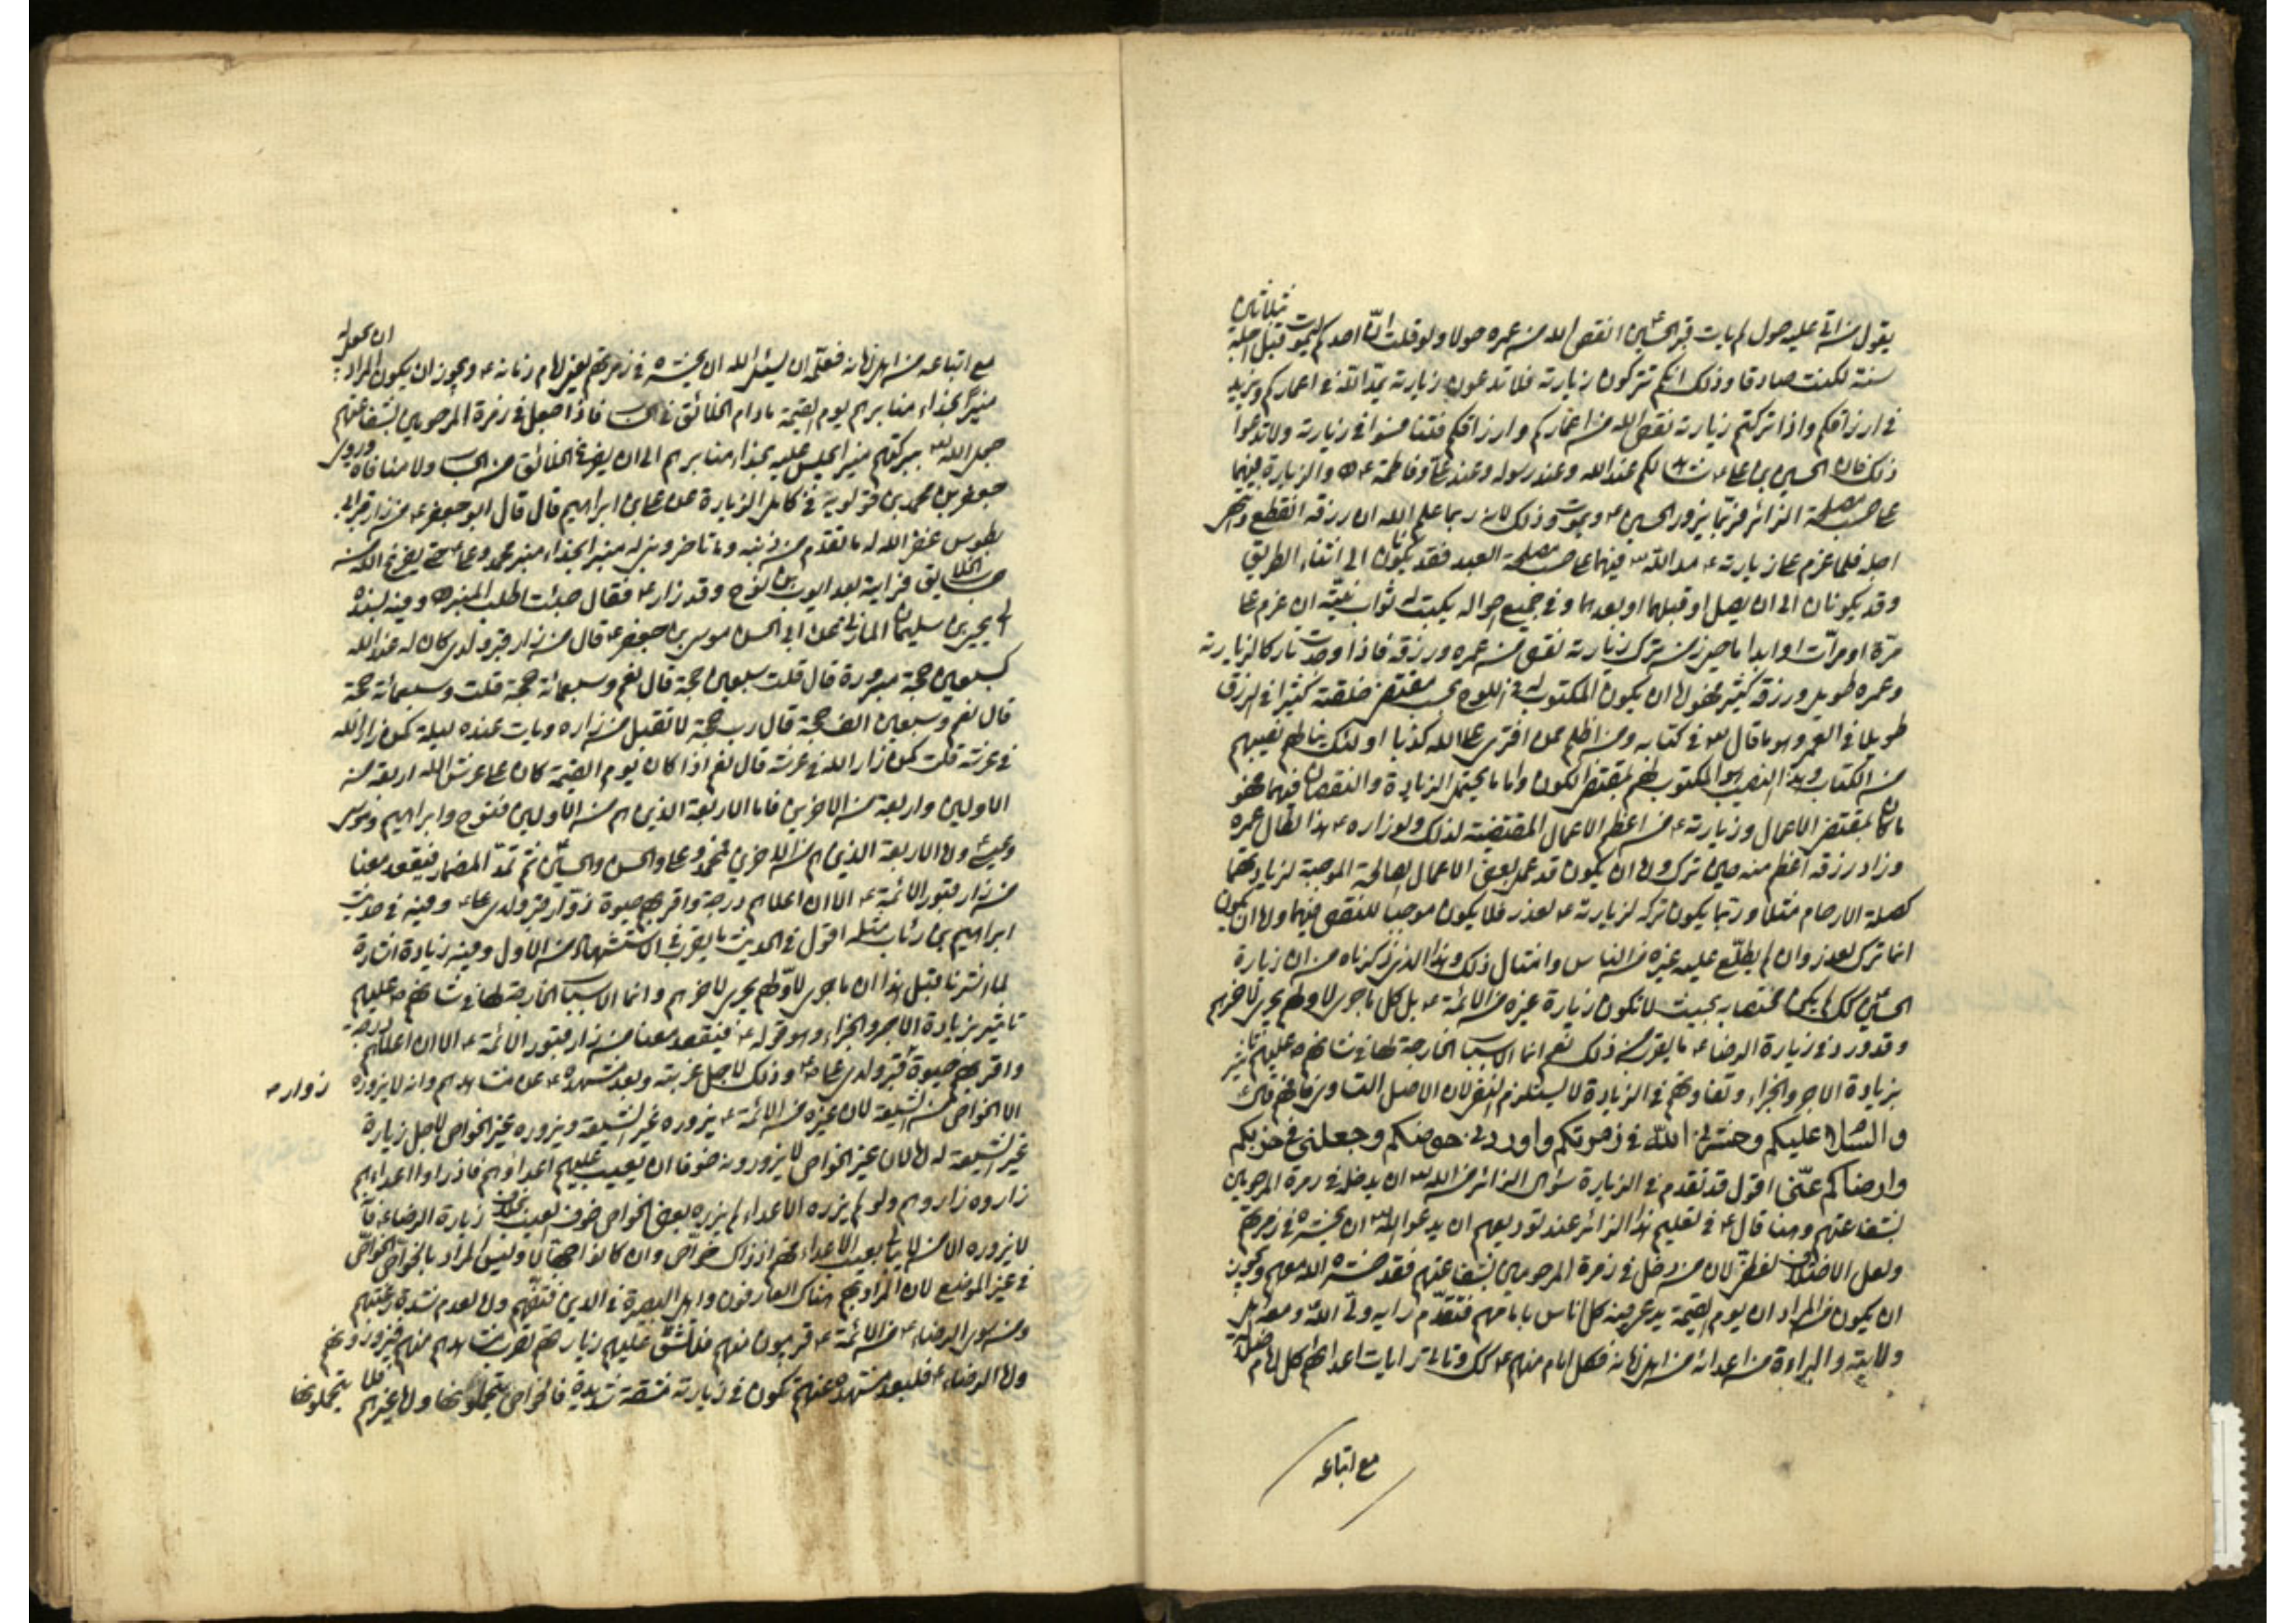 يقول من اتى عليه حول لم يات قبر الحسين ع انقص الله من عمره حولا ولو قلت انّ احدكم ليموت قبل اجله بثلاثين
سنة لكنت صادقا وذلك انكم تتركون زيارته فلا تدعون زيارته يمدّ الله في اعماركم ويزيد
في ارزاقكم واذا تركتم زيارته نقص الله من اعماركم وارزاقكم فتنافسوا في زيارته ولا تدعوا
ذلك فان الحسين بن علي ع شاهد لكم عند الله وعند رسوله وعند علي وفاطمة ع هـ والزيارة فيهما
على حسب مصلحة الزائر فربّما يزور الحسين ع ويموت وذلك لانه ربما علم الله ان رزقه انقطع وانتهى
اجله فلما عزم على زيارته ع مد الله له فيهما على حسب مصلحة العبد فقد يكونان الى اثناء الطريق
وقد يكونان الى ان يصل او قبلهما او بعدهما وفي جميع احواله يكتب له ثواب نيّته ان عزم على
مرّة او مرّات او ابدا ما حيي ومن ترك زيارته نقص من عمره ورزقه فاذا وجدت تاركا لزيارته
وعمره طويل ورزقه كثير فهو لها ان يكون المكتوب له في اللوح بحسب مقتضى خلقته كثيرا في الرزق
طويلا في العمر وهو ما قال تعالى في كتابه ومن اظلم ممن افترى على الله كذبا اولئك ينالهم نصيبهم
من الكتاب وهذا النصيب هو المكتوب لهم بمقتضى الكون واما ما يحتمل الزيادة والنقصان فيهما فهو
ما كان بمقتضى الاعمال وزيارته ع من اعظم الاعمال المقتضية لذلك ولو زاره ع هذا لطال عمره
وزاد رزقه اعظم منه حين ترك ولها ان يكون قد عمل بعض الاعمال الصالحة الموجبة لزيادتهما
كصلة الارحام مثلا وربّما يكون تركه لزيارته ع لعذر فلا يكون موجبا للنقص فيهما ولها ان يكون
انما ترك لعذر وان لم يطلع عليه غيره من الناس وامثال ذلك وهذا الذي ذكرناه من ان زيارة
الحسين ع كك لم يكن مختصا به بحيث لا تكون زيارة غيره من الائمة ع بل كل ما جرى لاولهم يجري لاخرهم
وقد ورد في زيارة الرضا ع ما يقرب من ذلك نعم انما الاسباب الخارجة لها في شانهم ع عليهم تاثير
بزيادة الاجر والجزاء وتفاوتهم في الزيادة لا يستلزم النفي لان الاصل التساوي فافهم قال ع
والسّلام عليكم وحشرني اللّه في زمرتكم واوردني حوضكم وجعلني في حزبكم
وارضاكم عنّي اقول قد تقدم في الزيارة سؤال الزائر من الله تعالى ان يدخله في زمرة المرحومين
بشفاعتهم وهنا قال ع في تعليم هذا الزائر عند توديعهم ان يدعو الله تعالى ان يحشره في زمرتهم
ولعل الاختلاف لفظيّ لان من دخل في زمرة المرحومين بشفاعتهم فقد حشره الله معهم ويجوز
ان يكون المراد ان يوم القيمة يدعى فيه كل اناس بامامهم فتقدّم راية وليّ اللّه ومعه اهل
ولايته والبراءة من اعدائه من اهل زمانه فكل امام منهم ع كك وتاتي رايات اعدائهم كل امام ضلالة
مع اتباعه
مع اتباعه من اهل زمانه فعلى ان يسئل الله ان يحشره في زمرتهم يعني امام زمانه ع ويجوز ان يكون المراد ان يجعل له
منبرا بحذاء منابرهم يوم القيمة ما دام الخلائق في الحساب فاذا جعل في زمرة المرحومين بشفاعتهم
جعل الله له ببركتهم منبر ايجلس عليه بحذاء منابرهم الى ان يفرغ الخلائق من الحساب ولا منافاة وروى
جعفر بن محمد بن قولويه في كامل الزيارة عن علي بن ابراهيم قال قال ابو جعفر ع من زار قبر ابي
بطوس غفر الله له ما تقدم من ذنبه وما تاخر وبنى له منبرا بحذاء منبر محمد وعلي ع حتى يفرغ الله من
حساب الخلايق فرايته بعد ايوب بن نوح وقد زار ع فقال جئت اطلب المنبر هـ وفيه بسنده
الى يحيى بن سليمان المازني عن ابي الحسن موسى بن جعفر ع قال من زار قبر ولدي كان له عند الله
كسبعين حجة مبرورة قال قلت سبعين حجة قال نعم وسبعمائة حجة قلت وسبعمائة حجة
قال نعم وسبعين الف حجة قال رب حجة لا تقبل من زاره وبات عنده ليلة كمن زار الله
في عرشه قلت كمن زار الله في عرشه قال نعم اذا كان يوم القيمة كان على عرش الله اربعة من
الاولين واربعة من الاخرين فاما الاربعة الذين هم من الاولين فنوح وابراهيم وموسى
وعيسى واما الاربعة الذين هم من الاخرين فمحمد وعلي والحسن والحسين ثم تمدّ المضمار فيقعد معنا
من زار قبور الائمة ع الا ان اعلاهم درجة واقربهم حبوة زوار قبر ولدي علي ع وفيه في حديث
ابراهيم بن رئاب مثله اقول في الحديث ما يقرب في الاستشهاد من الاول وفيه زيادة اشارة
لما اشرنا قبل هذا ان ما جرى لاولهم يجري لاخرهم وانما الاسباب الخارجة لها في شانهم ع عليهم
تاثير بزيادة الاجر والجزاء وهو قوله ع فيقعد معنا من زار قبور الائمة ع الا ان اعلاهم درجة
واقربهم حبوة قبر ولدي علي ع وذلك لاجل غربته وبعد مشهده ع عن مشاهدهم وانه لا يزوره
زوار ع
الا الخواص من الشيعة لان غيره من الائمة ع يزوره غير الشيعة ويزوره غير الخواص لاجل زيارة
غير الشيعة له لان غير الخواص لا يزورونه خوفا ان يعيب عليهم اعداؤهم فاذا راوا اعداءهم
زاروه زاروهم ولو لم يزره الاعداء لم يزره بعض الخواص خوف العيب بخلاف زيارة الرضا ع فانّه
لا يزوره الا من لا يبالي بعيب الاعداء فهم اذ ذاك خواصّ وان كانوا جهّالا وليس المراد بالخواصّ الخواصّ
في غير الموضع لان المراد بهم هناك العارفون واهل البصيرة في الدين فتفهّم واما لعدم شدة رغبتهم
ومن سوى الرضا ع من الائمة ع قريبون منهم فلا تشقّ عليهم زيارتهم لقرب مشاهدهم منهم فيزورونهم
واما الرضا ع فلبعد مشهده عنهم تكون في زيارته مشقة شديدة فالخواص يتحملونها واما غيرهم فلا يتحملونها